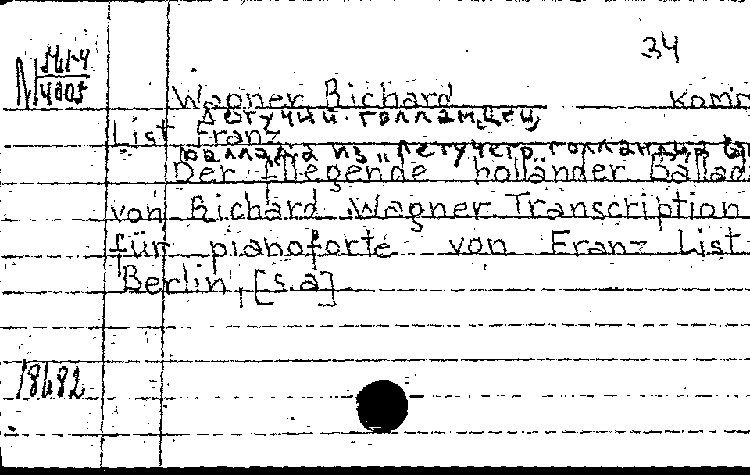 34
М1-4
4005
Wagner Richard комп
Летучий голландец
List Franz
баллада из „Летучего голландца
Der fliegende holländer Ballad
von Richard Wagner Transcription
für pianoforte von Franz List
Berlin, [s.a]
18682